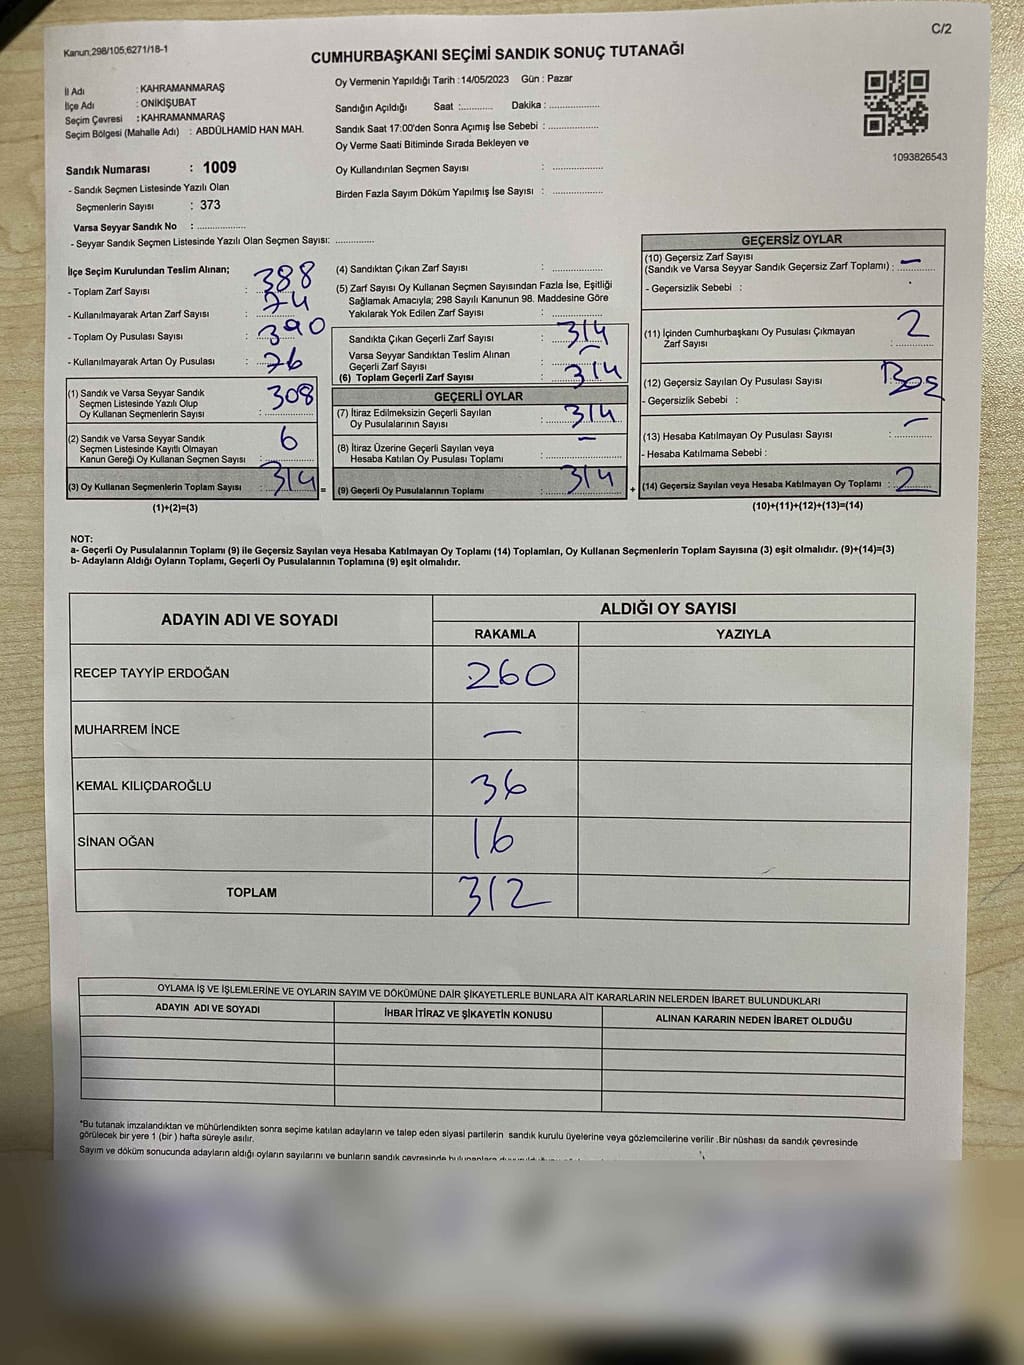 C/2
Kanun,298/105,6271/18-1
CUMHURBAŞKANI SEÇİMİ SANDIK SONUÇ TUTANAĞI
İl Adı : KAHRAMANMARAŞ
İlçe Adı : ONİKİŞUBAT
Seçim Çevresi : KAHRAMANMARAŞ
Seçim Bölgesi (Mahalle Adı) : ABDÜLHAMİD HAN MAH.
Sandık Numarası : 1009
- Sandık Seçmen Listesinde Yazılı Olan
Seçmenlerin Sayısı : 373
Varsa Seyyar Sandık No : ..................
- Seyyar Sandık Seçmen Listesinde Yazılı Olan Seçmen Sayısı: ..............
Oy Vermenin Yapıldığı Tarih : 14/05/2023 Gün : Pazar
Sandığın Açıldığı Saat :............ Dakika : ..................
Sandık Saat 17:00'den Sonra Açımış İse Sebebi : ..................
Oy Verme Saati Bitiminde Sırada Bekleyen ve
Oy Kullandırılan Seçmen Sayısı : ..................
Birden Fazla Sayım Döküm Yapılmış İse Sayısı : ..................
1093826543
İlçe Seçim Kurulundan Teslim Alınan;
- Toplam Zarf Sayısı : 388
- Kullanılmayarak Artan Zarf Sayısı : 74
- Toplam Oy Pusulası Sayısı : 390
- Kullanılmayarak Artan Oy Pusulası : 76
(1) Sandık ve Varsa Seyyar Sandık
Seçmen Listesinde Yazılı Olup
Oy Kullanan Seçmenlerin Sayısı : 308
(2) Sandık ve Varsa Seyyar Sandık
Seçmen Listesinde Kayıtlı Olmayan
Kanun Gereği Oy Kullanan Seçmen Sayısı : 6
(3) Oy Kullanan Seçmenlerin Toplam Sayısı : 314 =
(1)+(2)=(3)
(4) Sandıktan Çıkan Zarf Sayısı : ..................
(5) Zarf Sayısı Oy Kullanan Seçmen Sayısından Fazla İse, Eşitliği
Sağlamak Amacıyla; 298 Sayılı Kanunun 98. Maddesine Göre
Yakılarak Yok Edilen Zarf Sayısı : ..................
Sandıkta Çıkan Geçerli Zarf Sayısı : 314
Varsa Seyyar Sandıktan Teslim Alınan
Geçerli Zarf Sayısı : —
(6) Toplam Geçerli Zarf Sayısı : 314
GEÇERLİ OYLAR
(7) İtiraz Edilmeksizin Geçerli Sayılan
Oy Pusulalarının Sayısı : 314
(8) İtiraz Üzerine Geçerli Sayılan veya
Hesaba Katılan Oy Pusulası Toplamı : —
(9) Geçerli Oy Pusulalarının Toplamı : 314 +
GEÇERSİZ OYLAR
(10) Geçersiz Zarf Sayısı
(Sandık ve Varsa Seyyar Sandık Geçersiz Zarf Toplamı) : —
- Geçersizlik Sebebi :
(11) İçinden Cumhurbaşkanı Oy Pusulası Çıkmayan
Zarf Sayısı : 2
(12) Geçersiz Sayılan Oy Pusulası Sayısı :
- Geçersizlik Sebebi :
(13) Hesaba Katılmayan Oy Pusulası Sayısı : —
- Hesaba Katılmama Sebebi :
(14) Geçersiz Sayılan veya Hesaba Katılmayan Oy Toplamı : 2
(10)+(11)+(12)+(13)=(14)
NOT:
a- Geçerli Oy Pusulalarının Toplamı (9) ile Geçersiz Sayılan veya Hesaba Katılmayan Oy Toplamı (14) Toplamları, Oy Kullanan Seçmenlerin Toplam Sayısına (3) eşit olmalıdır. (9)+(14)=(3)
b- Adayların Aldığı Oyların Toplamı, Geçerli Oy Pusulalarının Toplamına (9) eşit olmalıdır.
ADAYIN ADI VE SOYADI
ALDIĞI OY SAYISI
RAKAMLA YAZIYLA
RECEP TAYYİP ERDOĞAN 260
MUHARREM İNCE —
KEMAL KILIÇDAROĞLU 36
SİNAN OĞAN 16
TOPLAM 312
OYLAMA İŞ VE İŞLEMLERİNE VE OYLARIN SAYIM VE DÖKÜMÜNE DAİR ŞİKAYETLERLE BUNLARA AİT KARARLARIN NELERDEN İBARET BULUNDUKLARI
ADAYIN ADI VE SOYADI İHBAR İTİRAZ VE ŞİKAYETİN KONUSU ALINAN KARARIN NEDEN İBARET OLDUĞU
*Bu tutanak imzalandıktan ve mühürlendikten sonra seçime katılan adayların ve talep eden siyasi partilerin sandık kurulu üyelerine veya gözlemcilerine verilir .Bir nüshası da sandık çevresinde
görülecek bir yere 1 (bir ) hafta süreyle asılır.
Sayım ve döküm sonucunda adayların aldığı oyların sayılarını ve bunların sandık çevresinde